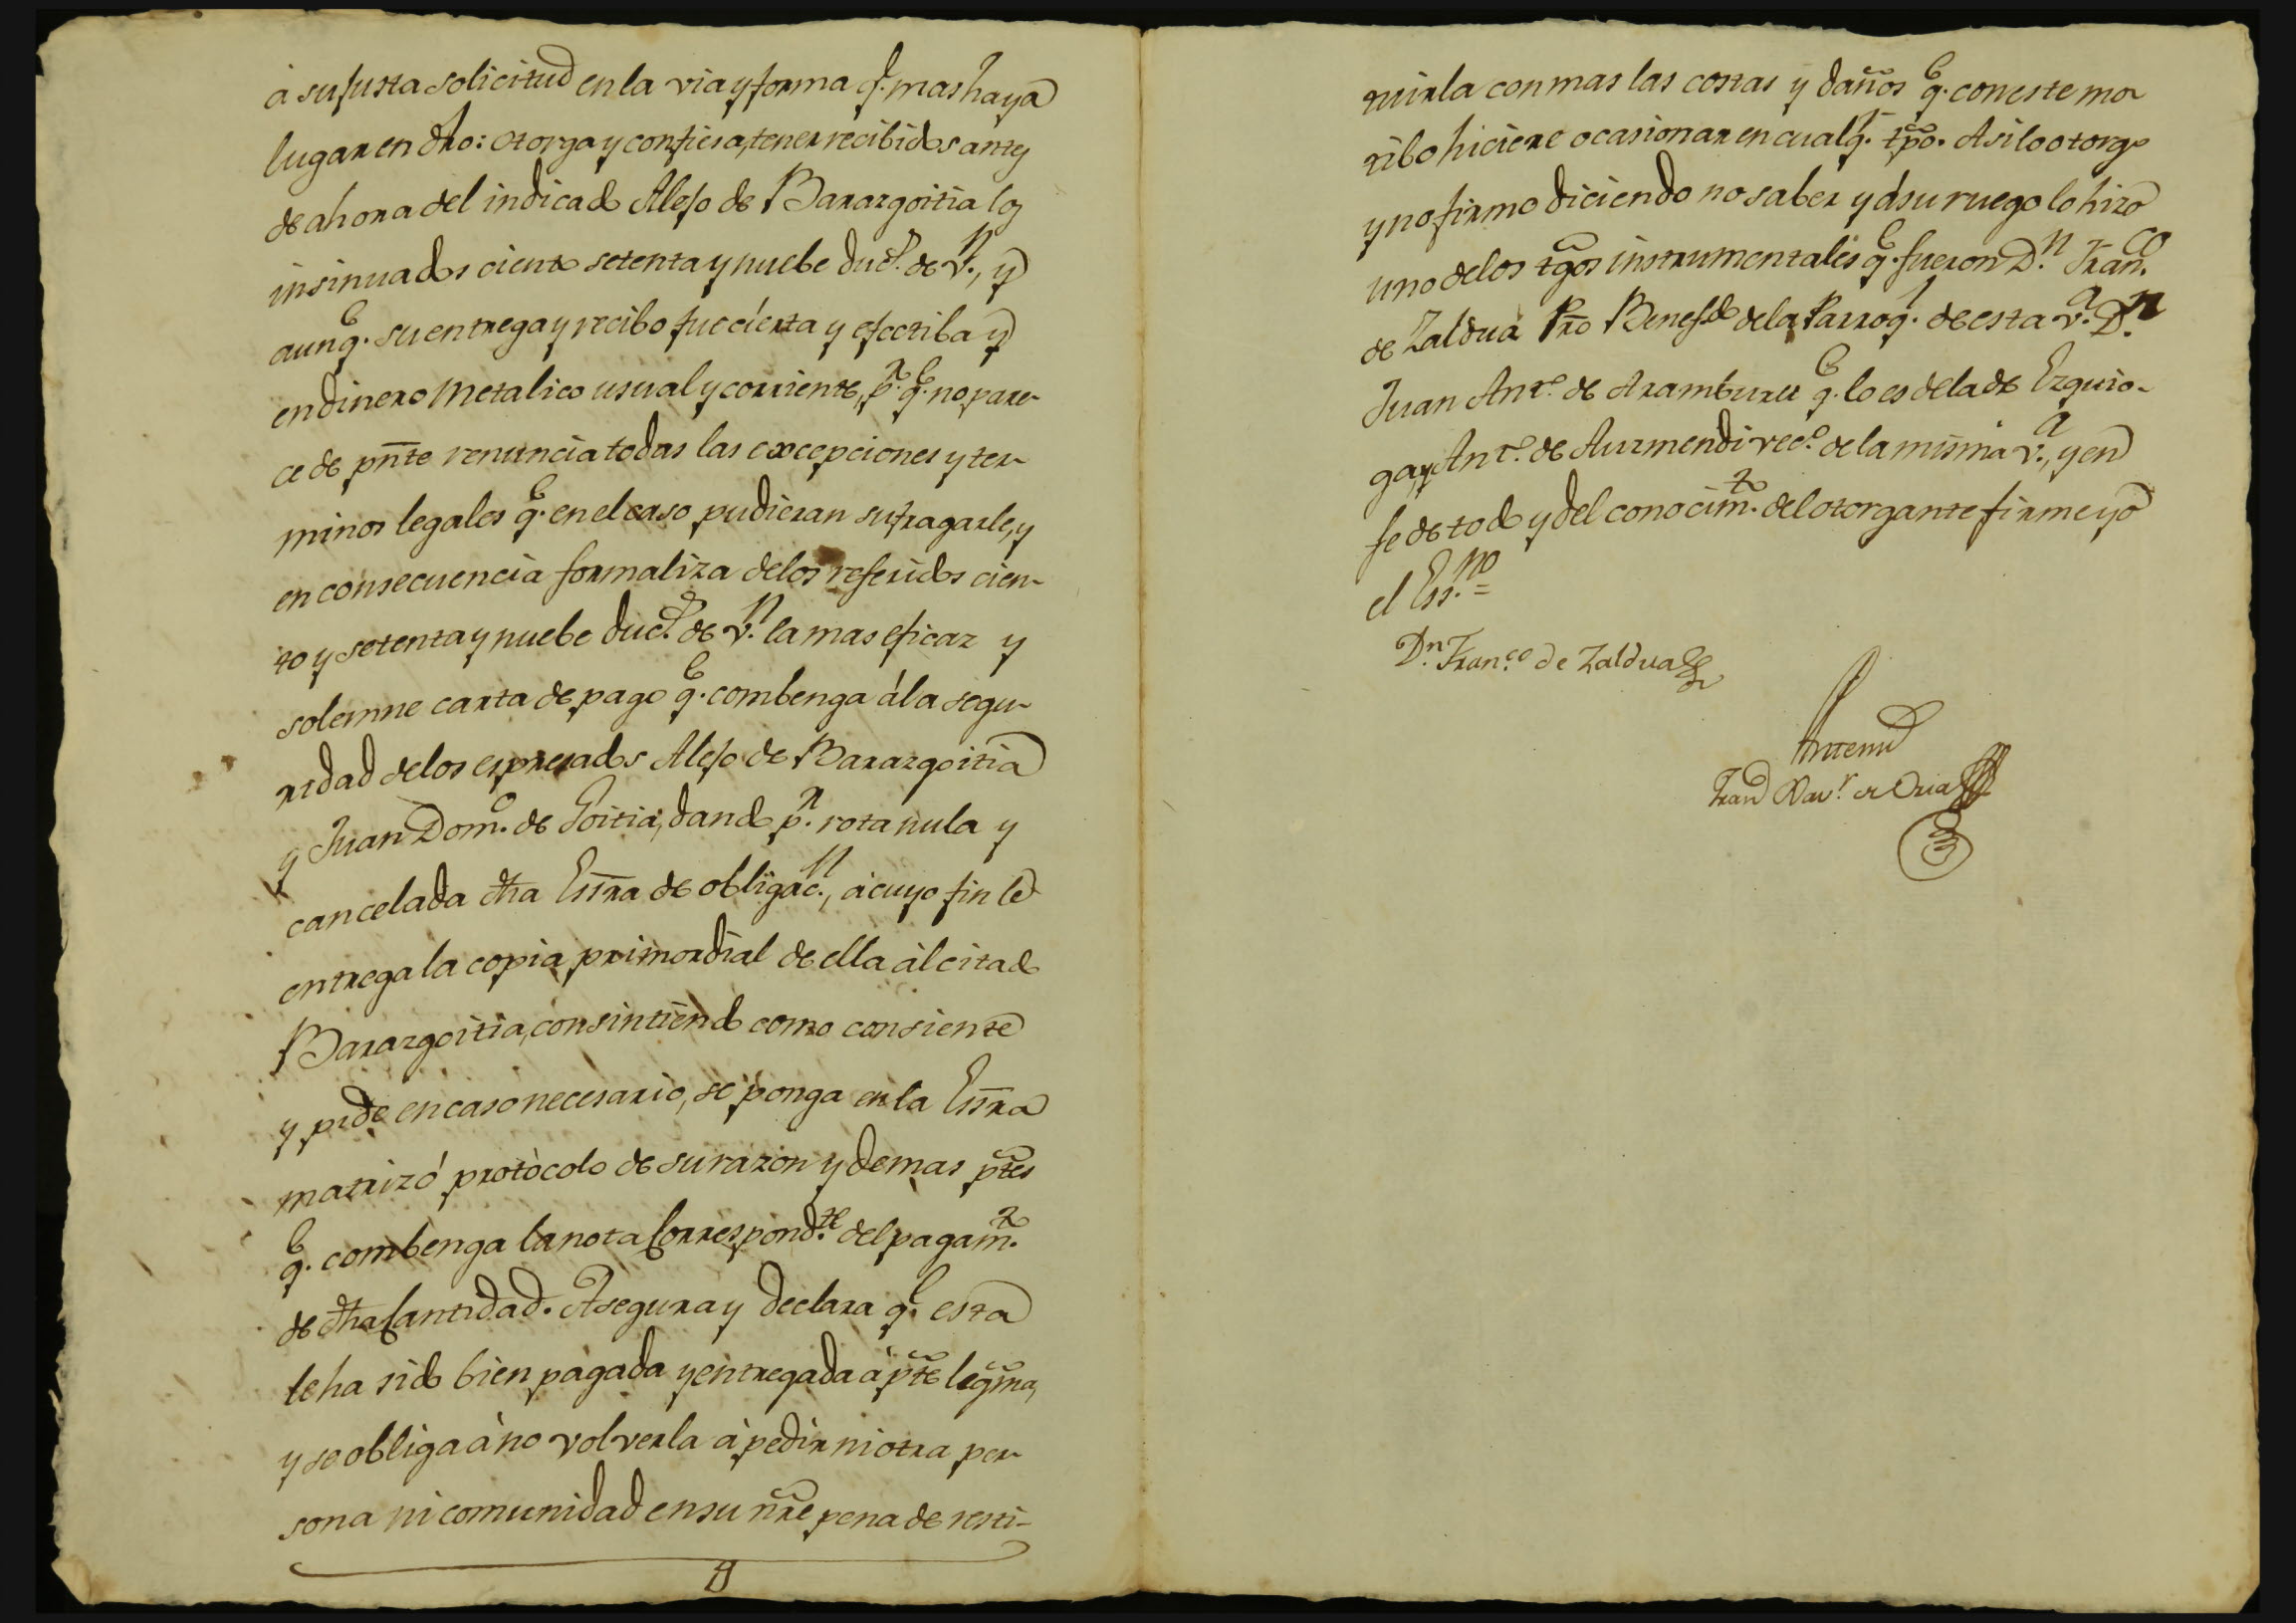 à su justa solicitud en la via y forma q.e mas haya
lugar en dro: otorga y confiesa, tener recibidos antes
de ahora del indicado Alejo de Barazgoitia los
insinuados ciento setenta y nuebe duc.s de v.n, y
aunq.e su entrega y recibo fue cierta y efectiba y
en dinero Metalico usual y corriente, p.r q.e no pare-
ce de pnte renuncia todas las excepciones y ter-
minos legales q.e en el caso pudieran sufragarle, y
en consecuencia formaliza delos referidos cien-
to y setenta y nuebe duc.s de v.n la mas eficaz y
solemne carta de pago q.e combenga á la segu-
ridad delos espresados Alejo de Barazgoitia
y Juan Dom.o de Goitia, dando p.r rota nula y
cancelada dha Essra de obligac.n, à cuyo fin le
entrega la copia primordial de ella àl citado
Barazgoitia, consintiendo como consiente
y pide en caso necesario, se ponga en la Essra
matriz ó protòcolo de su razon y demas ptes
q.e combenga la nota Correspond.te del pagam.to
de dha Cantidad. Asegura y declara q.e esta
le ha sido bien pagada y entregada à pte legma,
y se obliga à no volverla à pedir ni otra per-
sona ni comunidad en su nre pena de resti-
tuirla con mas las costas y daños q.e con este mo
tibo hiciere ocasionar en cualq.r tpo. Asi lo otorgo
y no firmo diciendo no saber y à su ruego lo hizo
uno delos tgos instrumentales q.e fueron D.n Fran.co
de Zaldua Pro Benef.do dela Parroq.l de esta v.a D.n
Juan Ant.o de Aramburu q.e lo es dela de Ezquio-
ga, y Ant.o de Aurmendi vec.o de la misma v.a, y en
fe de todo y del conocim.to del otorgante firme yo
el Ess.no =
D.n Fran.co de Zaldua
Antemi
Fran.co Xav.r de Oria